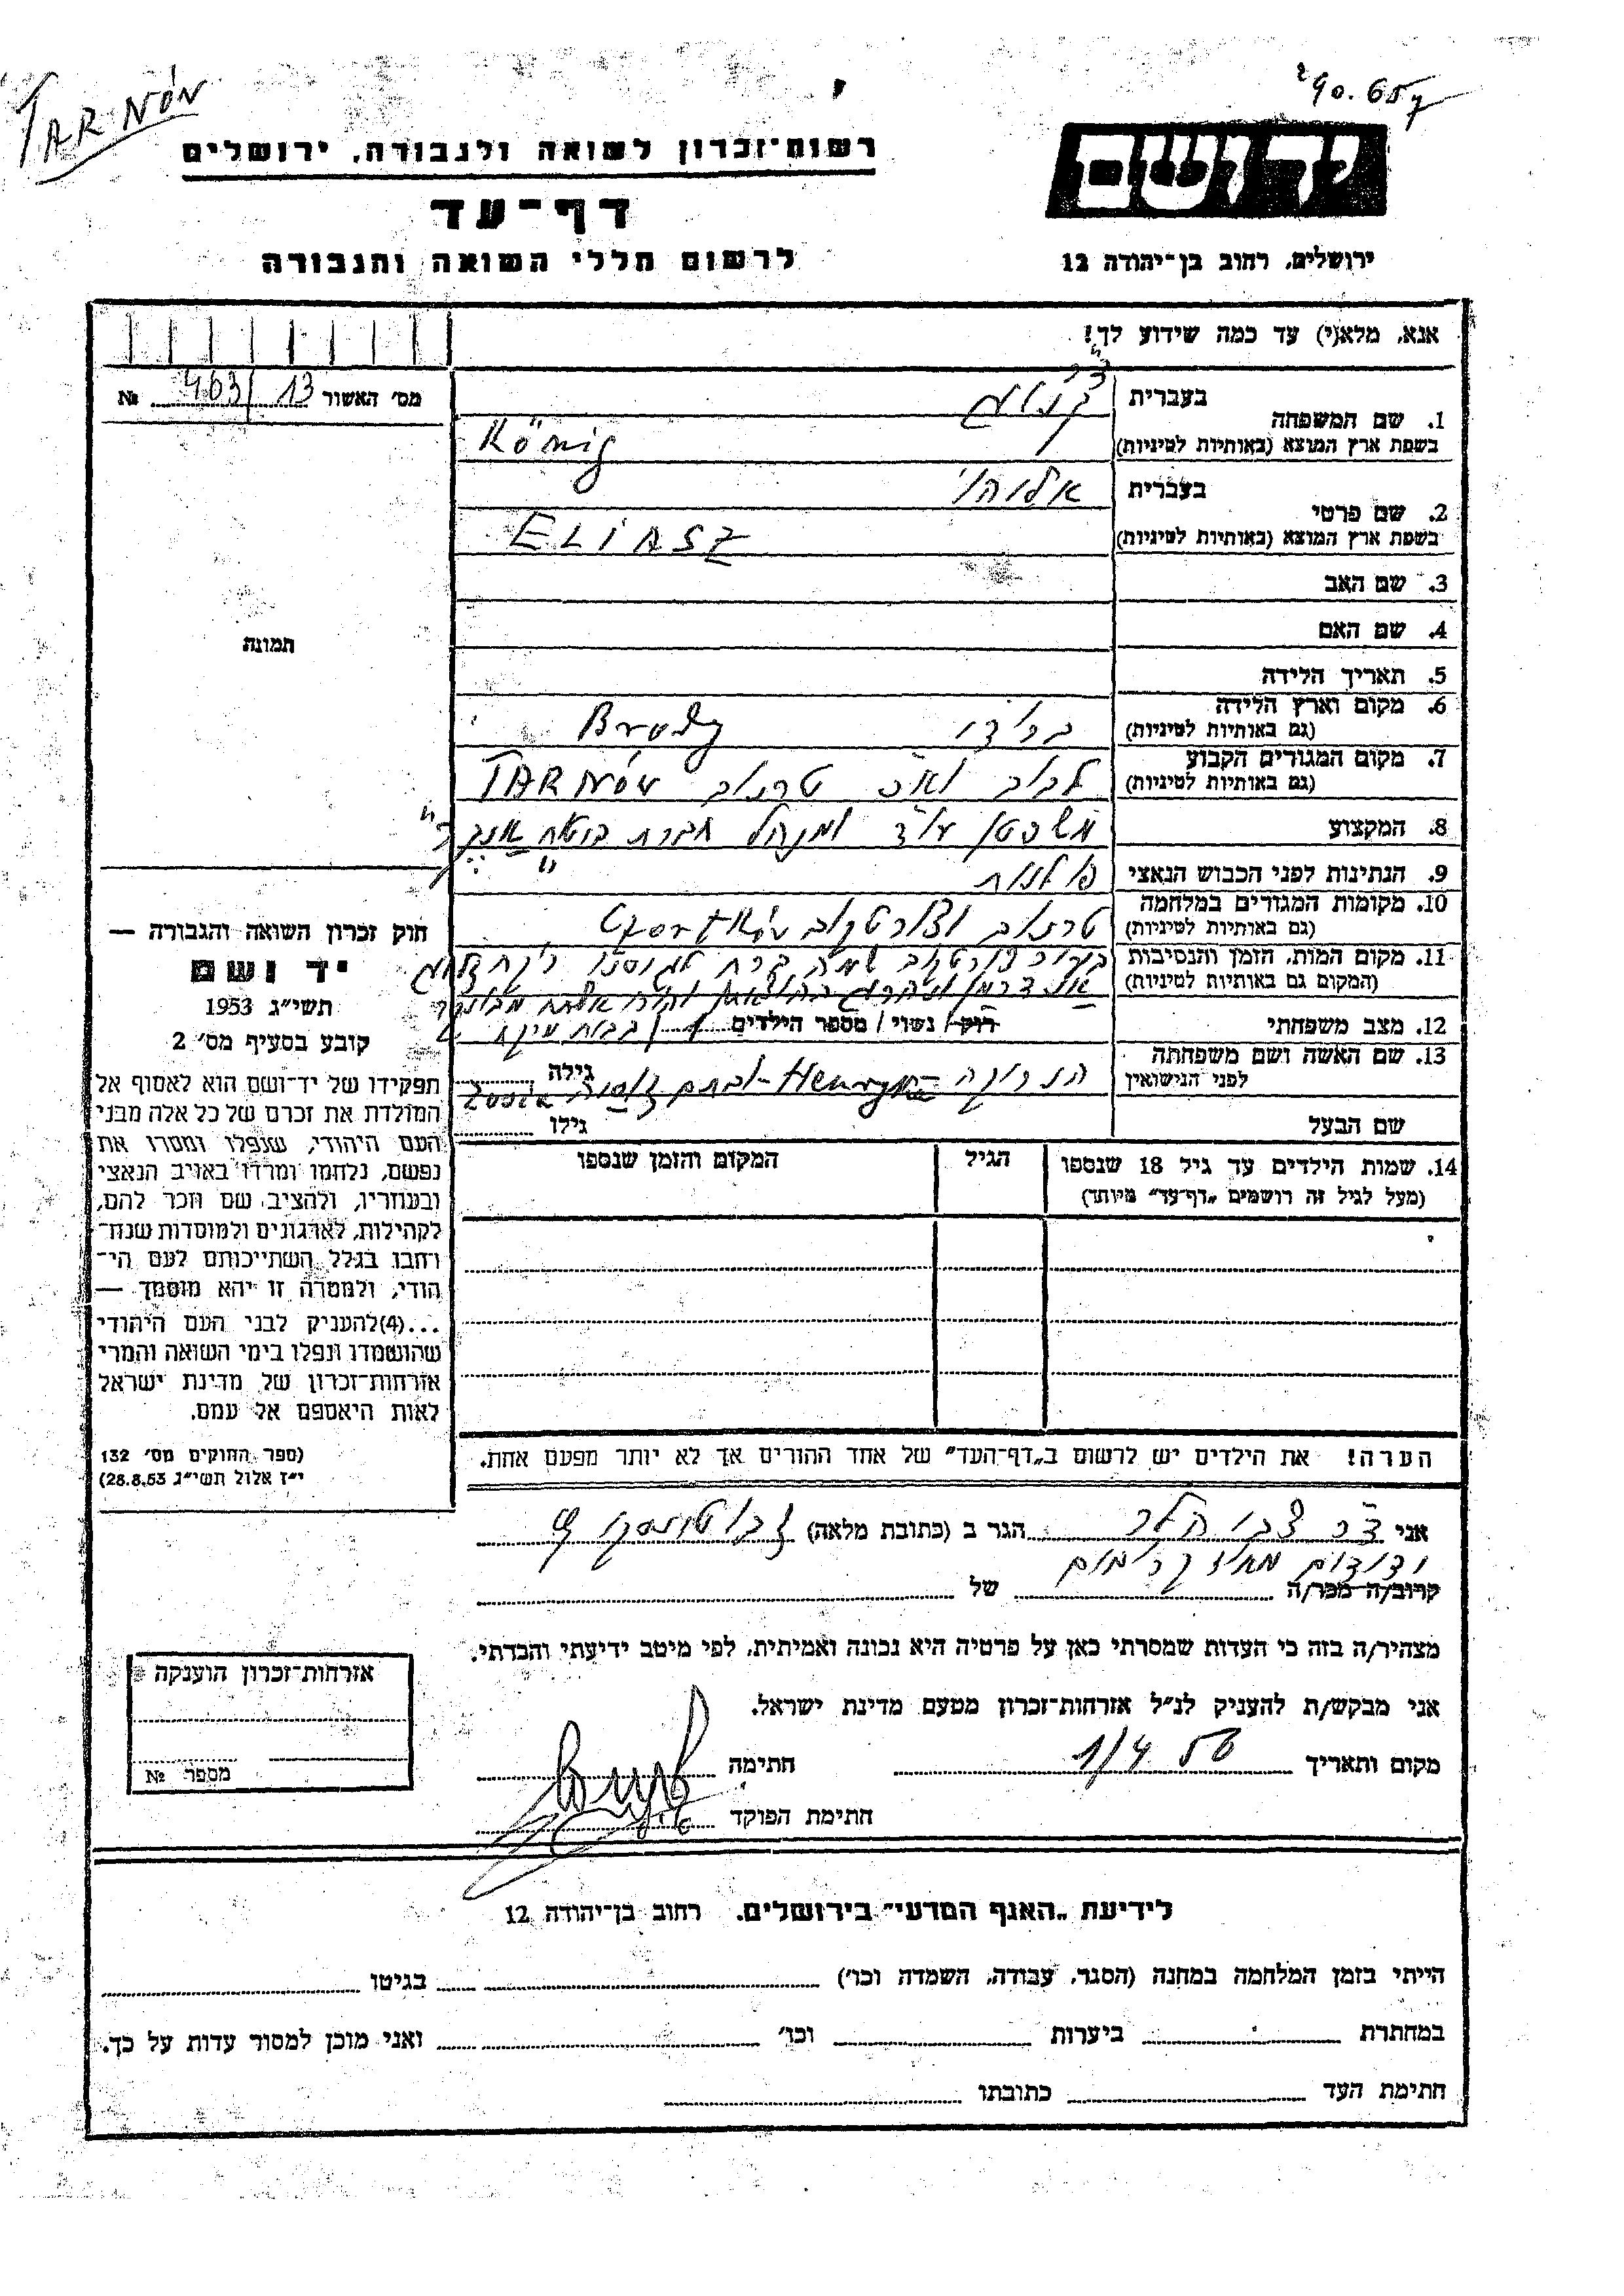 TARNÓW
290.657
רשות־זכרון לשואה ולגבורה, ירושלים
ידושם
דף־עד
לרשום חללי השואה והגבורה
ירושלים, רחוב בן־יהודה 12
אנא, מלא(י) עד כמה שידוע לך!
מס' האשור 463/13 №
1. שם המשפחה
בעברית
ד"ר
קניג
בשפת ארץ המוצא (באותיות לטיניות) König
2. שם פרטי
בעברית אליהו
בשפת ארץ המוצא (באותיות לטיניות) ELIASZ
3. שם האב
4. שם האם
תמונה
5. תאריך הלידה
6. מקום וארץ הלידה
(גם באותיות לטיניות) ברודי Brody
7. מקום המגורים הקבוע
(גם באותיות לטיניות) לבוב ואח" טרנוב TARNÓW
8. המקצוע משפטן עו"ד ומנהל חברת בטוח
9. הנתינות לפני הכבוש הנאצי פולנית
10. מקומות המגורים במלחמה
(גם באותיות לטיניות) טרנוב וצ'ורטקוב Czortków
11. מקום המות, הזמן והנסיבות
(המקום גם באותיות לטיניות)
12. מצב משפחתי רוק/ נשוי/ מספר הילדים 1
13. שם האשה ושם משפחתה
לפני הנישואין הנריקה Henryka Zosia גילה
שם הבעל גילו
14. שמות הילדים עד גיל 18 שנספו
(מעל לגיל זה רושמים „דף־עד" מיוחד)
הגיל
המקום והזמן שנספו
חוק זכרון השואה והגבורה —
יד ושם
תשי"ג 1953
קובע בסעיף מס' 2
תפקידו של יד־ושם הוא לאסוף אל
המולדת את זכרם של כל אלה מבני
העם היהודי, שנפלו ומסרו את
נפשם, נלחמו ומרדו באויב הנאצי
ובעוזריו, ולהציב שם וזכר להם,
לקהילות, לארגונים ולמוסדות שנח־
רחבו בגלל השתייכותם לעם הי־
הודי, ולמטרה זו יהא מוסמך —
...(4)להעניק לבני העם היהודי
שהושמדו ונפלו בימי השואה והמרי
אזרחות־זכרון של מדינת ישראל
לאות היאספם אל עמם.
(ספר החוקים מס' 132
י"ז אלול תשי"ג 28.8.53)
הערה! את הילדים יש לרשום ב„דף־העד" של אחד ההורים אך לא יותר מפעם אחת.
אני ד"ר צבי הלר הגר ב (כתובת מלאה) ז'בוטינסקי
קרוב/ה מכר/ה של
מצהיר/ה בזה כי העדות שמסרתי כאן על פרטיה היא נכונה ואמיתית, לפי מיטב ידיעתי והכרתי.
אני מבקש/ת להעניק לנ"ל אזרחות־זכרון מטעם מדינת ישראל.
מקום ותאריך 1/4 56 חתימה
חתימת הפוקד
אזרחות־זכרון הוענקה
מספר №
לידיעת „האגף המדעי" בירושלים, רחוב בן־יהודה 12
הייתי בזמן המלחמה במחנה (הסגר, עבודה, השמדה וכו') בגיטו
במחתרת ביערות וכו' ואני מוכן למסור עדות על כך.
חתימת העד כתובתו